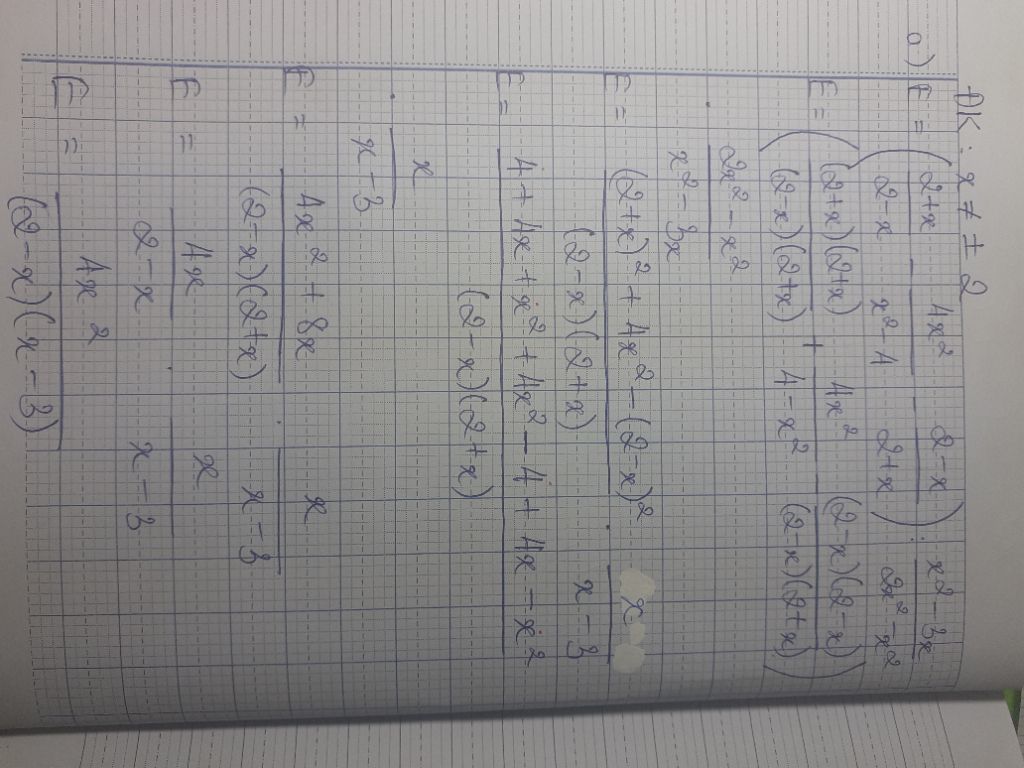 ĐK: x ≠ ± 2
a) E = ( (2+x)/(2-x) - 4x²/(x²-4) - (2-x)/(2+x) ) : (x²-3x)/(2x²-x²)
E = ( (2+x)(2+x)/(2-x)(2+x) + 4x²/(4-x²) - (2-x)(2-x)/(2-x)(2+x) )
· (2x²-x²)/(x²-3x)
E = ((2+x)²+4x²-(2-x)²)/(2-x)(2+x) · x/(x-3)
E = (4+4x+x²+4x²-4+4x-x²)/(2-x)(2+x)
· x/(x-3)
E = (4x²+8x)/(2-x)(2+x) · x/(x-3)
E = 4x/(2-x) · x/(x-3)
E = 4x²/(2-x)(x-3)